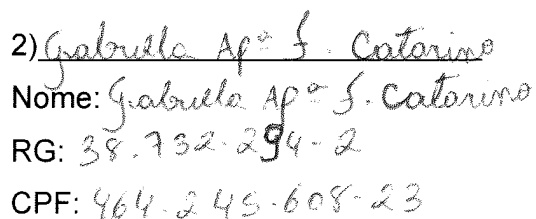 2) Gabriella Apª F. Catarino
Nome: Gabriella Apª F. Catarino
RG: 38.732.294-2
CPF: 464.245.608-23